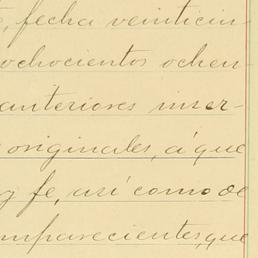 , fecha veinticin-
ochocientos ochen-
anteriores inser-
originales, á que
y fe, así como de
omparecientes, que